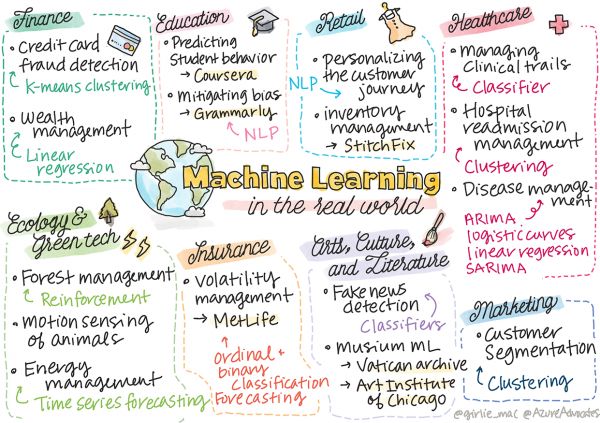 Finance
• Credit card
fraud detection
K-means clustering
• Wealth
management
Linear
regression
Education
• Predicting
Student behavior
→ Coursera
• Mitigating bias
→ Grammarly
NLP
Retail
• personalizing
the customer
journey
NLP
• inventory
management
→ StitchFix
Healthcare
• managing
Clinical trails
Classifier
• Hospital
readmission
management
Clustering
• Disease manage-
ment
ARIMA
logistic curves
linear regression
SARIMA
Machine Learning
in the real world
Ecology &
Green tech
• Forest management
Reinforcement
• Motion sensing
of animals
• Energy
management
Time series forecasting
Insurance
• Volatility
management
→ MetLife
ordinal +
binary
Classification
Forecasting
Arts, Culture,
and Literature
• Fake news
detection
Classifiers
• Musium ML
→ Vatican archive
→ Art Institute
of Chicago
Marketing
• Customer
Segmentation
Clustering
@girlie_mac @AzureAdvocates